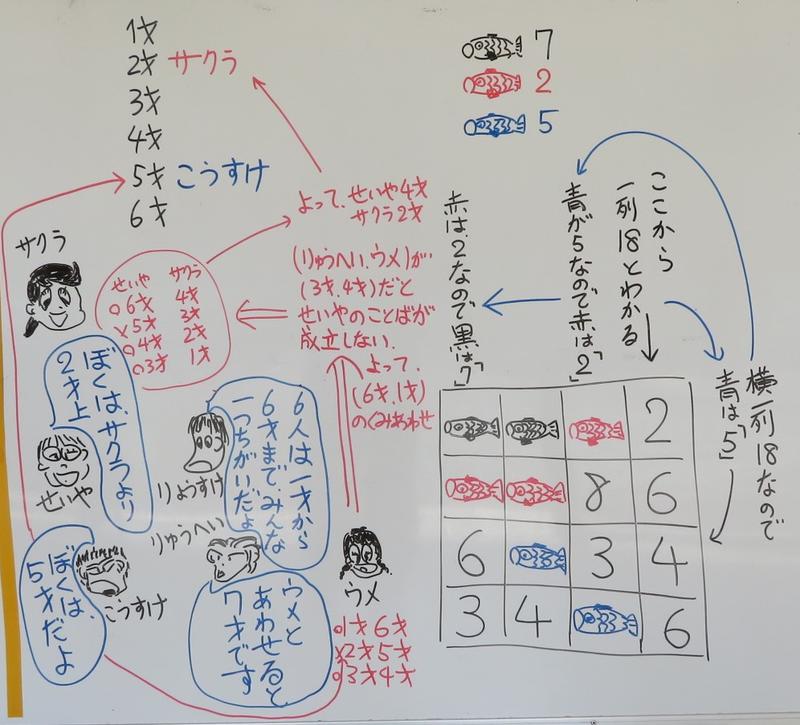 1才
2才 サクラ
3才
4才
5才 こうすけ
6才
7
2
5
よって、せいや4才
サクラ2才
(りゅうへい、ウメ)が、
(3才、4才)だと
せいやのことばが
成立しない.
よって、
(6才、1才)
のくみあわせ
せいや サクラ
○6才 4才
×5才 3才
○4才 2才
○3才 1才
サクラ
ぼくは、サクラより
2才上
せいや
6人は一才から
6才まで、みんな
一つちがいだよ
りょうすけ
りゅうへい
ウメと
あわせると
7才です
ウメ
○1才6才
×2才5才
○3才4才
ぼくは、
5才だよ
こうすけ
ここから
一列18とわかる
横一列18なので
青は「5」
青が5なので赤は「2」
赤は、2なので黒は「7」
2
8 6
6 3 4
3 4 6